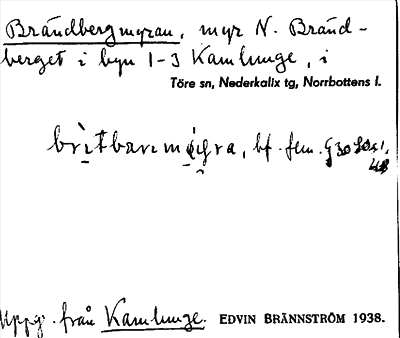 Brändbergmyran, myr N. Bränd-
berget i byn 1-3 Kamlunge, i
Töre sn, Nederkalix tg, Norrbottens l.
bf. fem.
Uppg. från Kamlunge. EDVIN BRÄNNSTRÖM 1938.